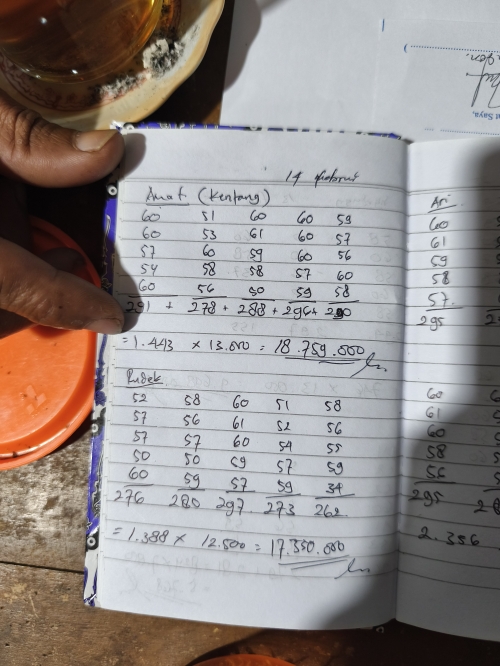 14 Februari
Amat (Kentang)
60 51 60 60 59
60 53 61 60 57
57 60 59 60 56
54 58 58 57 60
60 56 50 59 58
291 + 278 + 288 + 296 + 290
= 1.443 × 13.000 = 18.759.000
Rudek
52 58 60 51 58
57 56 61 52 56
57 57 60 54 55
50 50 59 57 59
60 59 57 59 34
276 280 297 273 262
= 1.388 × 12.500 = 17.350.000
Ari
60
61
59
58
57
295
60
61
60
58
56
295
2.356